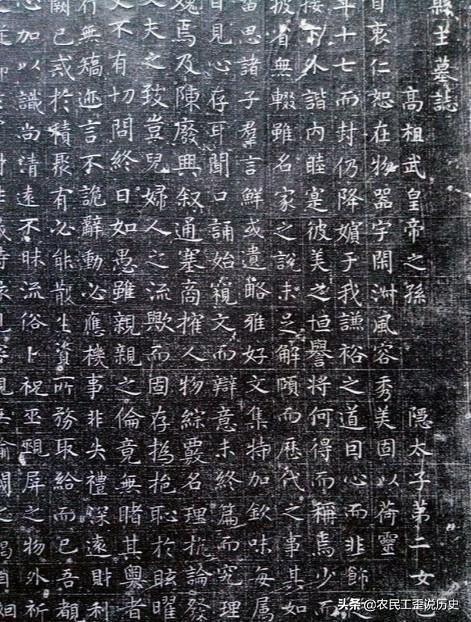 縣主墓誌
高祖武皇帝之孫 隱太子第二女也
自衷仁恕在物器宇閑淋風容秀美固以荷靈
年十七而封仍降嬪于我謙裕之道因心而非飾
接下外諧內睦寔彼美之恒譽將何得而稱焉少而
披省無輟雖名家之說未足解頤而歷代之事其如
思諸子羣言鮮或遺略雅好文集特加欽味每屬
日見心存耳聞口誦始窺文而辯意未終篇而究理
愧焉及陳廢興叙通塞商搉人物綜覈名理抗論發
丈夫之致豈兒婦人之流歟而固存撝挹恥於眩曜
不有切問終日如愚雖親親之倫竟無睹其奧者
有無矯迹言不詭辭動必應機事非失禮深遠財利
闕已或於積聚有必能散生資所務取給而已吾
心加以識尚清遠不昧流俗卜祝巫覡屏之物外祈
头条@农民工歪说历史